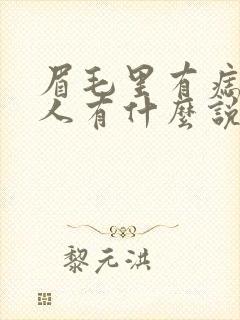 眉毛里有痣
人有什麼說
黎元洪